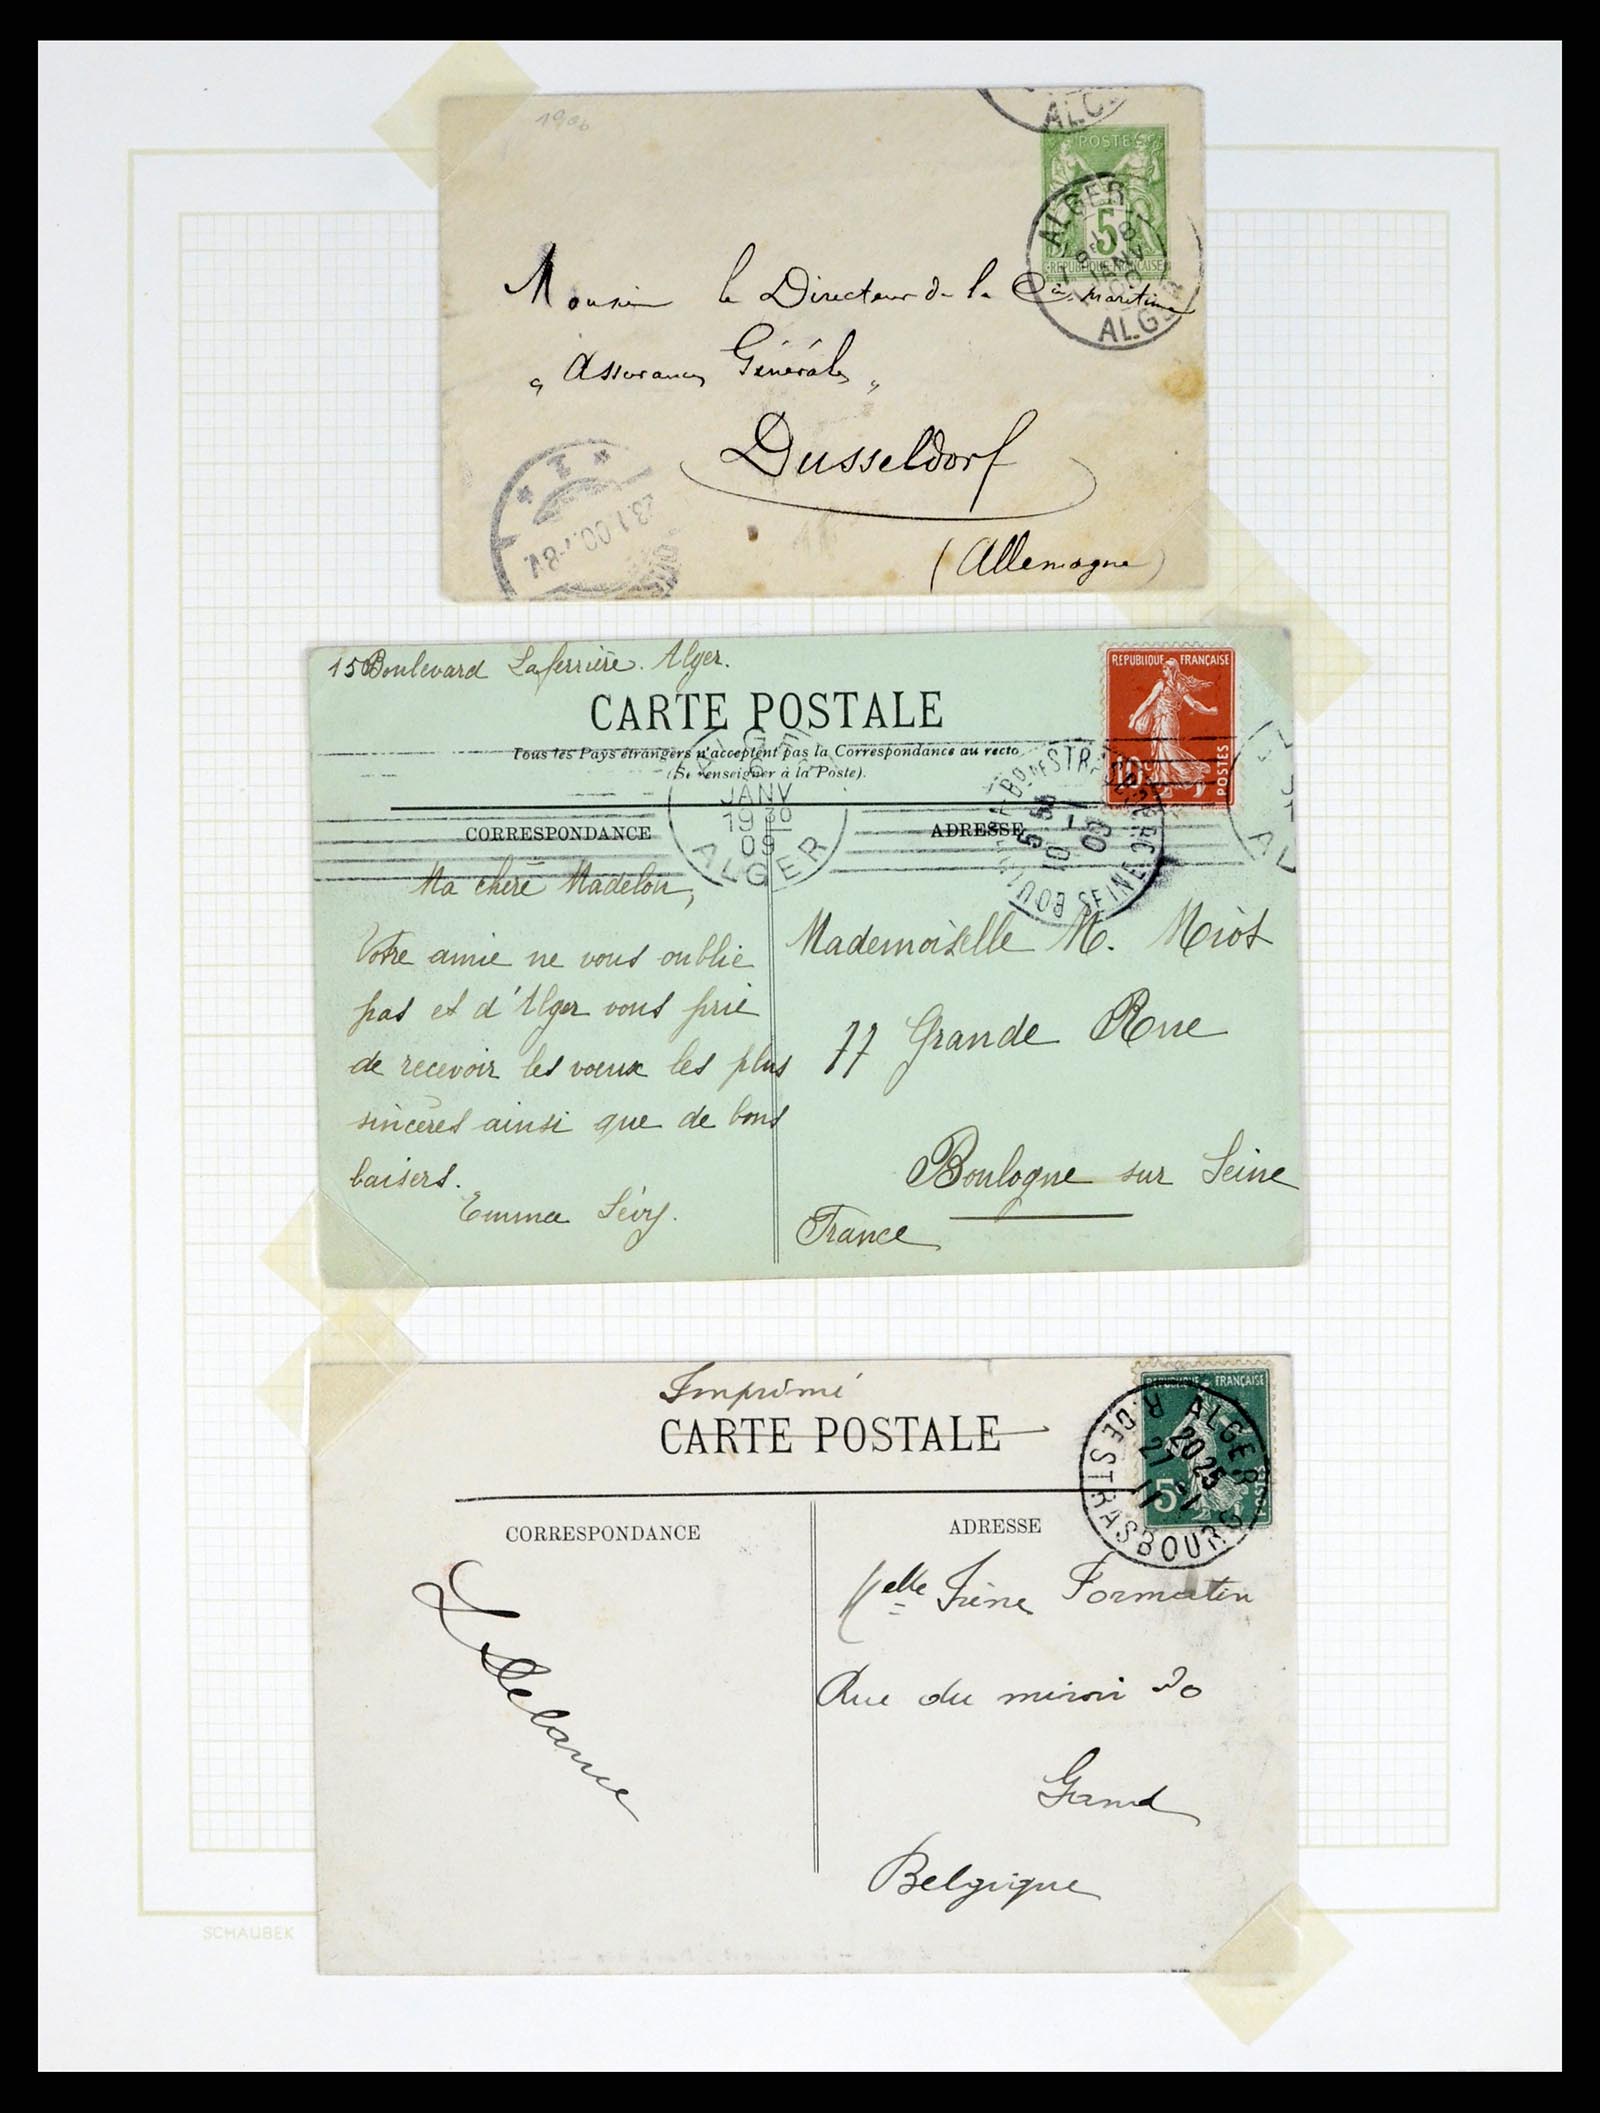 1900
ALG
POSTES
5
REPUBLIQUE FRANÇAISE
ALGER
JANV
ALGER
Monsieur le Directeur de la Cie Maritime
"Assurances Générales"
Dusseldorf
(Allemagne)
* 1 *
23.1.00.7-8V.
15 Boulevard Laferrière. Alger.
REPUBLIQUE FRANÇAISE
10c
POSTES
CARTE POSTALE
Tous les Pays étrangers n'acceptent pas la Correspondance au recto
(Se renseigner à la Poste).
JANV
19 30
09
ALGER
5 50
10 - 1
09
SEINE
AL
CORRESPONDANCE
ADRESSE
Ma chère Madelon,
Votre amie ne vous oublie
pas et d'Alger vous prie
de recevoir les vœux les plus
sincères ainsi que de bons
baisers.
Emma Lévy.
Mademoiselle M. Miot
77 Grande Rue
Boulogne sur Seine
France
Imprimé
CARTE POSTALE
REPUBLIQUE FRANÇAISE
5c
POSTES
ALGER
20 25
27 - 1
11
R. DE STRASBOURG
CORRESPONDANCE
ADRESSE
Melle Irène Formatin
Rue du miroir 30
Gand
Belgique
SCHAUBEK